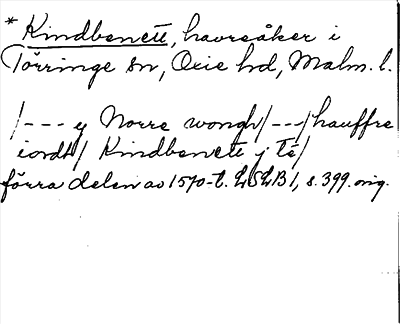 * Kindbenett, havreåker i
Törringe sn, Oxie hd, Malm. l.
/--- y Norre wongh/---/hauffre
iordt/ Kindbenett j te/
förra delen av 1570-t. LSLB 1, s. 399. orig.